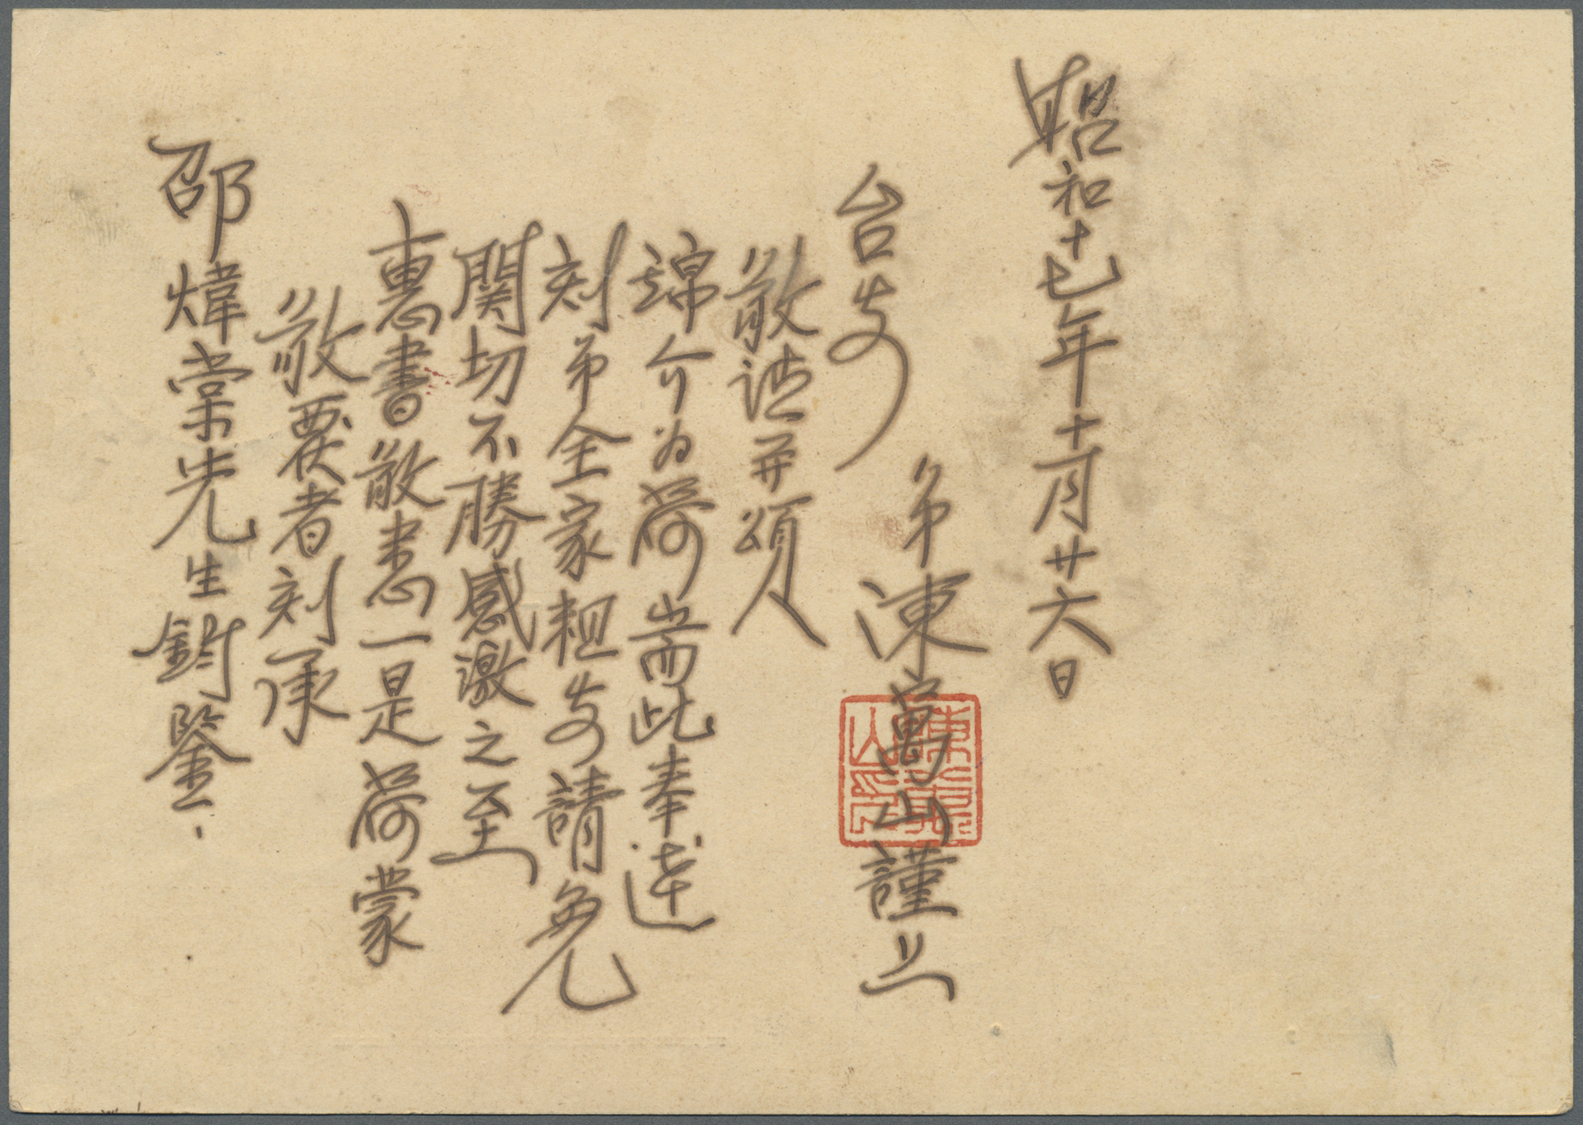 邵煒棠先生鈞鑒.
敬覆者刻承
惠書敬悉一是荷蒙
関切不勝感激之至
刻弟全家粗安請免
錦介为荷耑此奉達
敬并頌
台安
弟陳萬山謹上
陳萬山印
昭和十七年十月廿六日